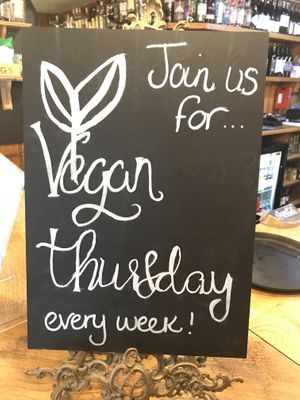 Join us
for...
Vegan
thursday
every week!